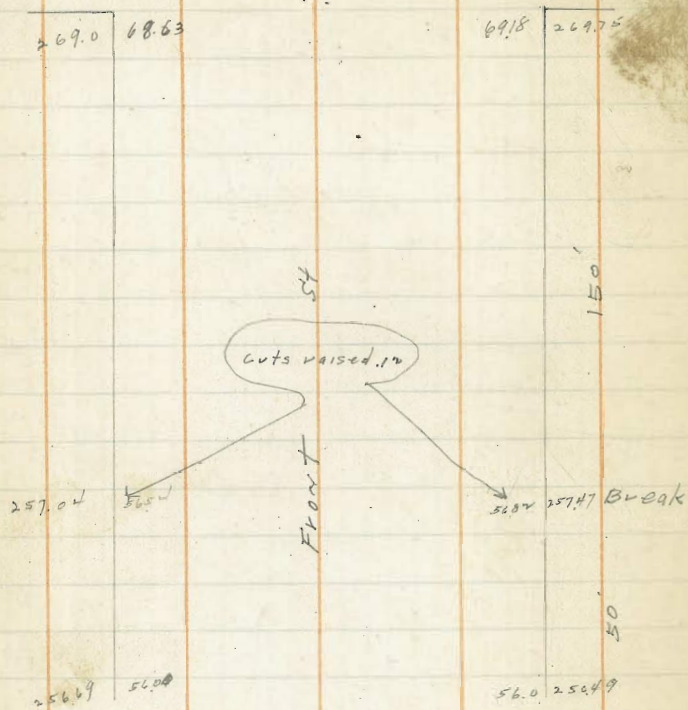 269.0 68.63 69.18 269.75
150'
St
Cuts raised .12
Front
257.04 56.54 56.82 257.47 Break
50
256.69 56.00 56.0 250.49